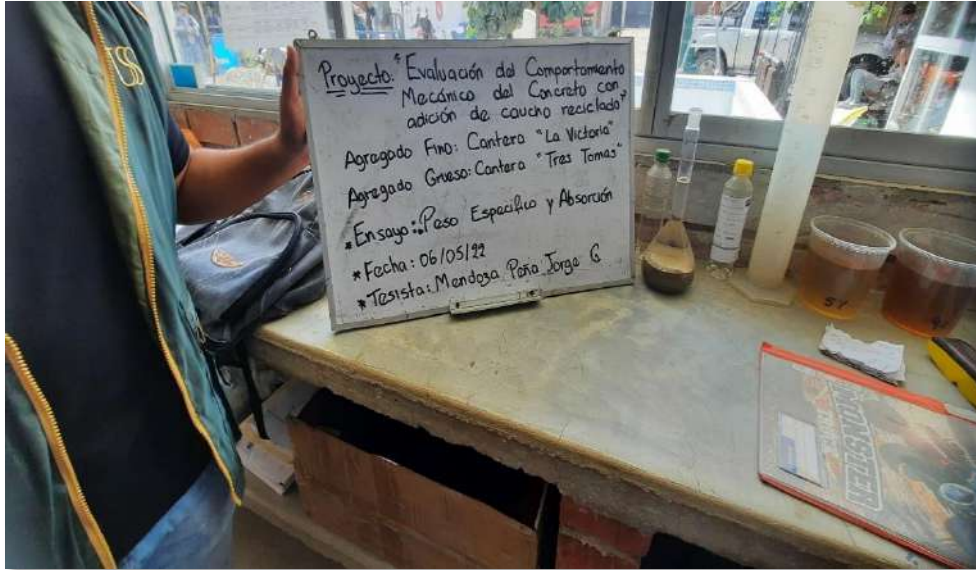 Proyecto: "Evaluación del Comportamiento
Mecánico del Concreto con
adición de caucho reciclado"
Agregado Fino: Cantera "La Victoria"
Agregado Grueso: Cantera "Tres Tomas"
* Ensayo: Peso Especifico y Absorción
* Fecha: 06/05/22
* Tesista: Mendoza Peña Jorge G